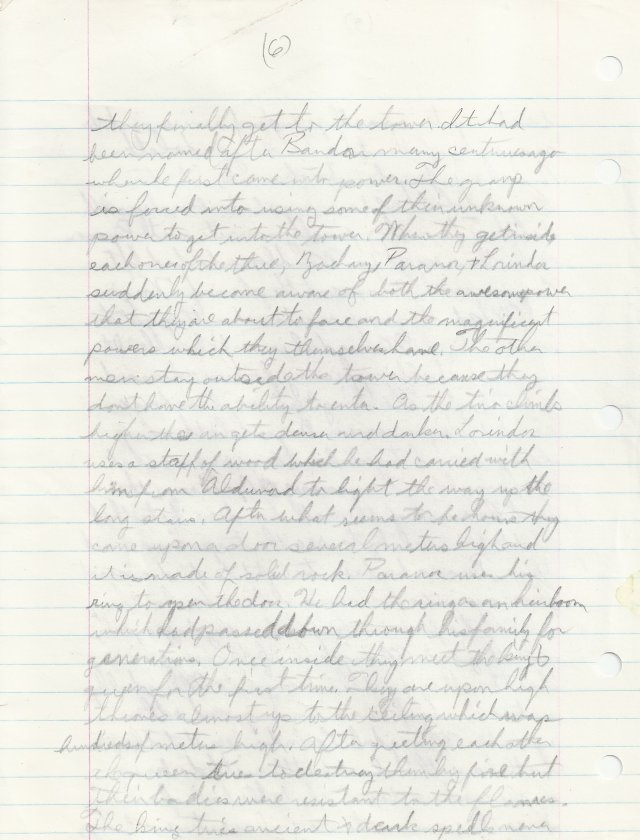 (6)
they finally get to the tower. It had
been named after Bandor many centuries ago
when he first came into power. The group
is forced into using some of their unknown
power to get into the tower. When they get inside
each one of the three, Zachary, Paranor, & Lorindor
suddenly become aware of both the awesome power
that they are about to face and the magnificent
powers which they themselves have. The other
men stay outside the tower because they
don't have the ability to enter. As the trio climbs
higher the air gets denser and darker. Lorindor
uses a staff of wood which he had carried with
him from to light the way up the
long stairs. After what seems to be hours they
come upon a door several meters high and
it is made of solid rock. Paranor uses his
ring to open the door. He had the ring as an heirloom
which had passed down through his family for
generations. Once inside they meet the king &
queen for the first time. They are upon high
thrones almost up to the ceiling which was
hundreds of meters high. After greeting each other
the queen tries to destroy them by fire but
their bodies were resistant to the flames.
The king tries ancient & dark spells never